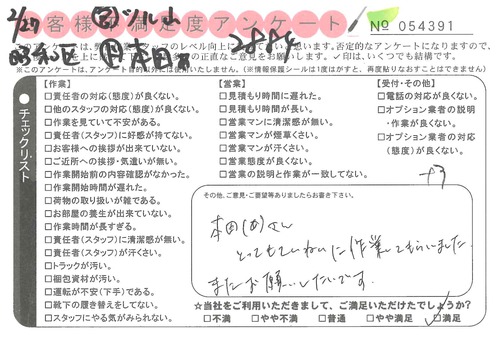 お客様満足度アンケート
№ 054391
2/27
※このアンケートは、アンケート目的以外には使用いたしません。(※情報保護シールは1度はがすと、再度貼りなおすことはできません)
チェックリスト
【作業】
□責任者の対応(態度)が良くない。
□他のスタッフの対応(態度)が良くない。
□作業を見ていて不安がある。
□責任者(スタッフ)に好感が持てない。
□お客様への挨拶が出来ていない。
□ご近所への挨拶・気遣いが無い。
□作業開始前の内容確認がなかった。
□作業開始時間が遅れた。
□荷物の取り扱いが雑である。
□お部屋の養生が出来ていない。
□作業時間が長すぎる。
□責任者(スタッフ)に清潔感が無い。
□責任者(スタッフ)が汗くさい。
□トラックが汚い。
□梱包資材が汚い。
□運転が不安(下手)である。
□靴下の履き替えをしてない。
□スタッフにやる気がみられない。
【営業】
□見積もり時間に遅れた。
□見積もり時間が長い。
□営業マンに清潔感が無い。
□営業マンが煙草くさい。
□営業マンが汗くさい。
□営業態度が良くない。
□営業の説明と作業が一致してない。
【受付・その他】
□電話の対応が良くない。
□オプション業者の説明
・作業が良くない。
□オプション業者の対応
(態度)が良くない。
その他、ご意見・ご要望等ありましたらお書き下さい。
本田(め)さん
とってもていねいに作業してもらいました
またお願いしたいです。
☆当社をご利用いただきまして、ご満足いただけたでしょうか?
□不満 □やや不満 □普通 □やや満足 □満足